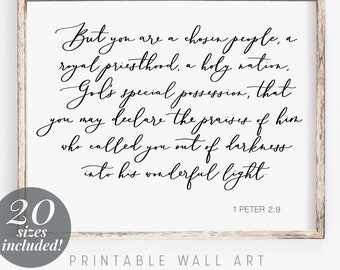 But you are a chosen people, a
royal priesthood, a holy nation,
God's special possession, that
you may declare the praises of him
who called you out of darkness
into his wonderful light.
1 PETER 2:9
20
sizes
included!
PRINTABLE WALL ART